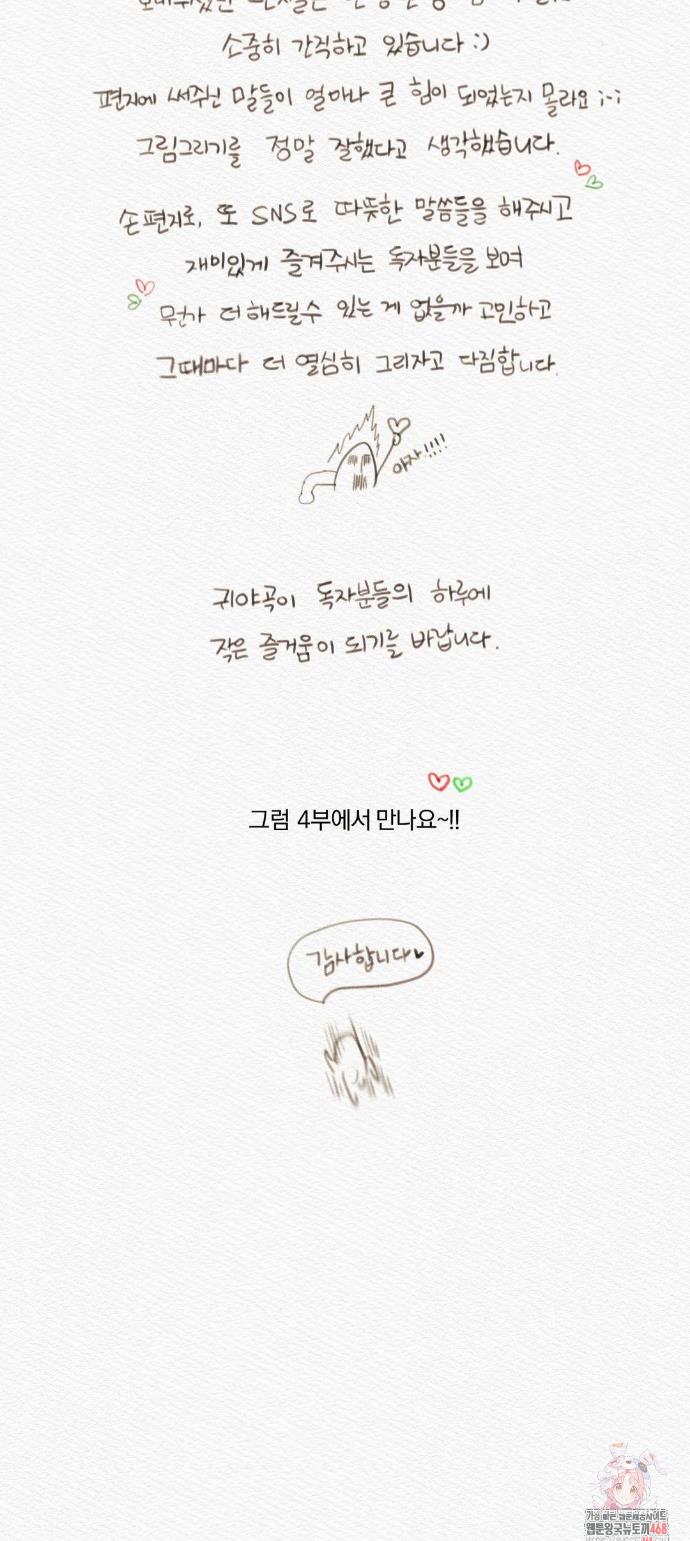 소중히 간직하고 있습니다 :)
편지에 써주신 말들이 얼마나 큰 힘이 되었는지 몰라요 ;-;
그림그리기를 정말 잘했다고 생각했습니다.
손편지로, 또 SNS로 따뜻한 말씀들을 해주시고
재미있게 즐겨주시는 독자분들을 보며
뭔가 더 해드릴수 있는 게 없을까 고민하고
그때마다 더 열심히 그리자고 다짐합니다.
아자!!!!
귀야곡이 독자분들의 하루에
작은 즐거움이 되기를 바랍니다.
그럼 4부에서 만나요~!!
감사합니다♥
가장 빠른 웹툰제공사이트
웹툰왕국뉴토끼468